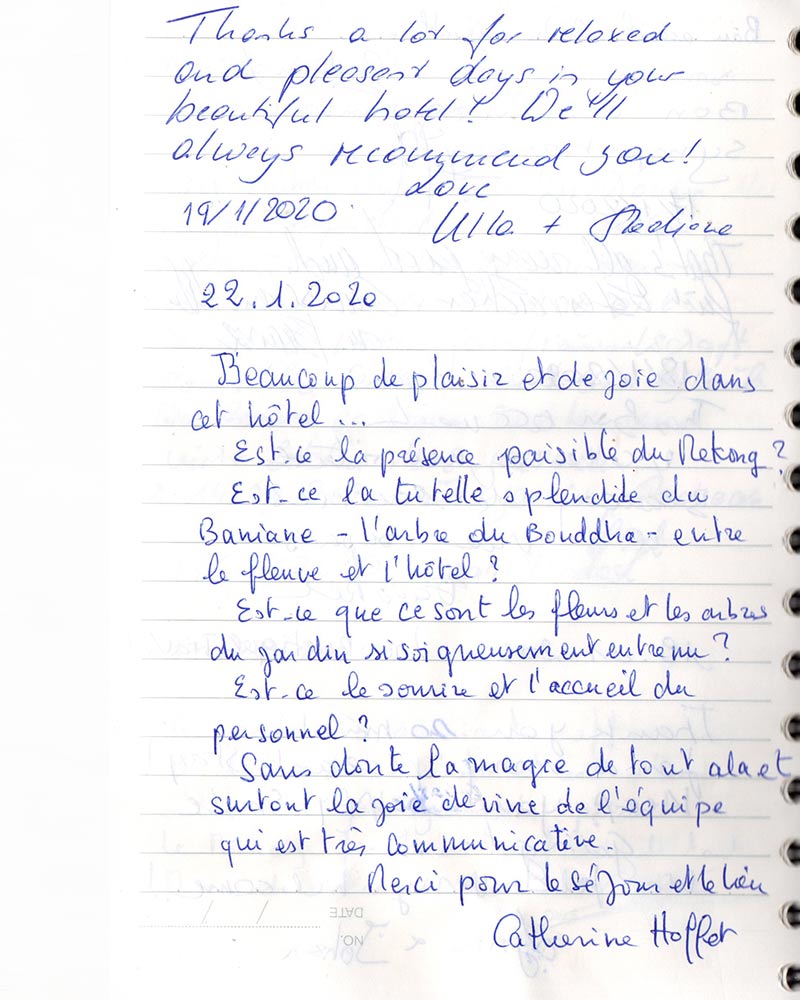 Thanks a lot for relaxed
and pleasant days in your
beautiful hotel! We'll
always recommend you!
Love
19/1/2020.
Ulla +
22.1.2020
Beaucoup de plaisir et de joie dans
cet hôtel...
Est-ce la présence paisible du Mekong ?
Est-ce la tutelle splendide du
Baniane - l'arbre du Bouddha - entre
le fleuve et l'hôtel ?
Est-ce que ce sont les fleurs et les arbres
du jardin si soigneusement entretenu ?
Est-ce le sourire et l'accueil du
personnel ?
Sans doute la magie de tout cela et
surtout la joie de vivre de l'équipe
qui est très communicative.
Merci pour le séjour et le lieu
Catherine Hoffet
DATE
NO.